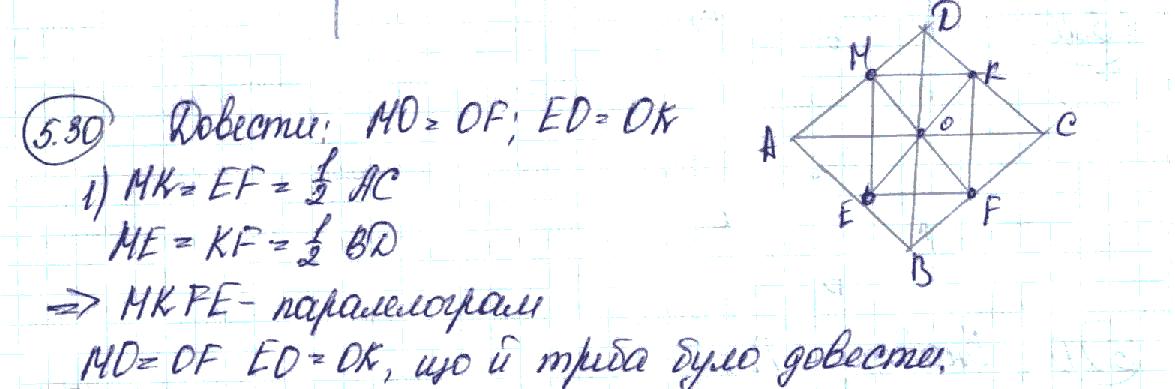 5.30 Довести: MO = OF; EO = OK
1) MK = EF = 1/2 AC
ME = KF = 1/2 BD
=> MKFE - паралелограм
MO = OF EO = OK, що й треба було довести.
D
M K
A O C
E F
B